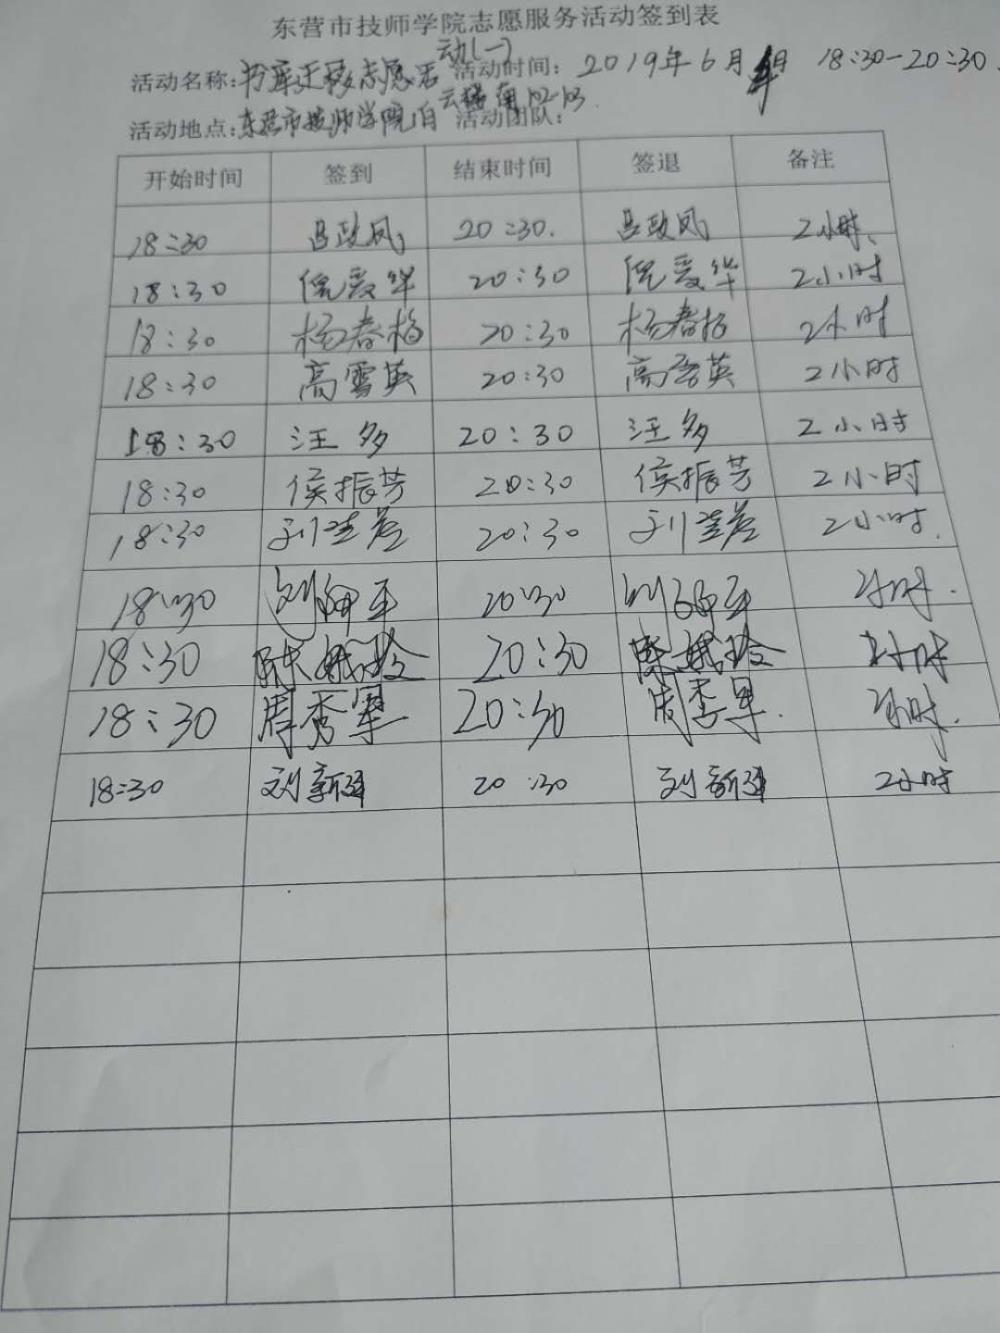 东营市技师学院志愿服务活动签到表
活动名称:书库迁移志愿活动(一) 活动时间: 2019年6月 日 18:30-20:30
活动地点:东营市技师学院 102-103 活动团队:
开始时间 签到 结束时间 签退 备注
18:30 吕政凤 20:30. 吕政凤 2小时.
18:30 倪爱华 20:30 倪爱华 2小时
18:30 杨春梅 20:30 杨春梅 2小时
18:30 高雪英 20:30 高雪英 2小时
18:30 汪多 20:30 汪多 2小时
18:30 侯振芳 20:30 侯振芳 2小时
18:30 20:30 2小时.
18:30 刘 平 20:30 刘 平 2小时.
18:30 陈娥玲 20:30 陈娥玲 2小时
18:30 周秀军 20:30 周秀军. 2小时.
18:30 刘新 20:30 刘新 2小时